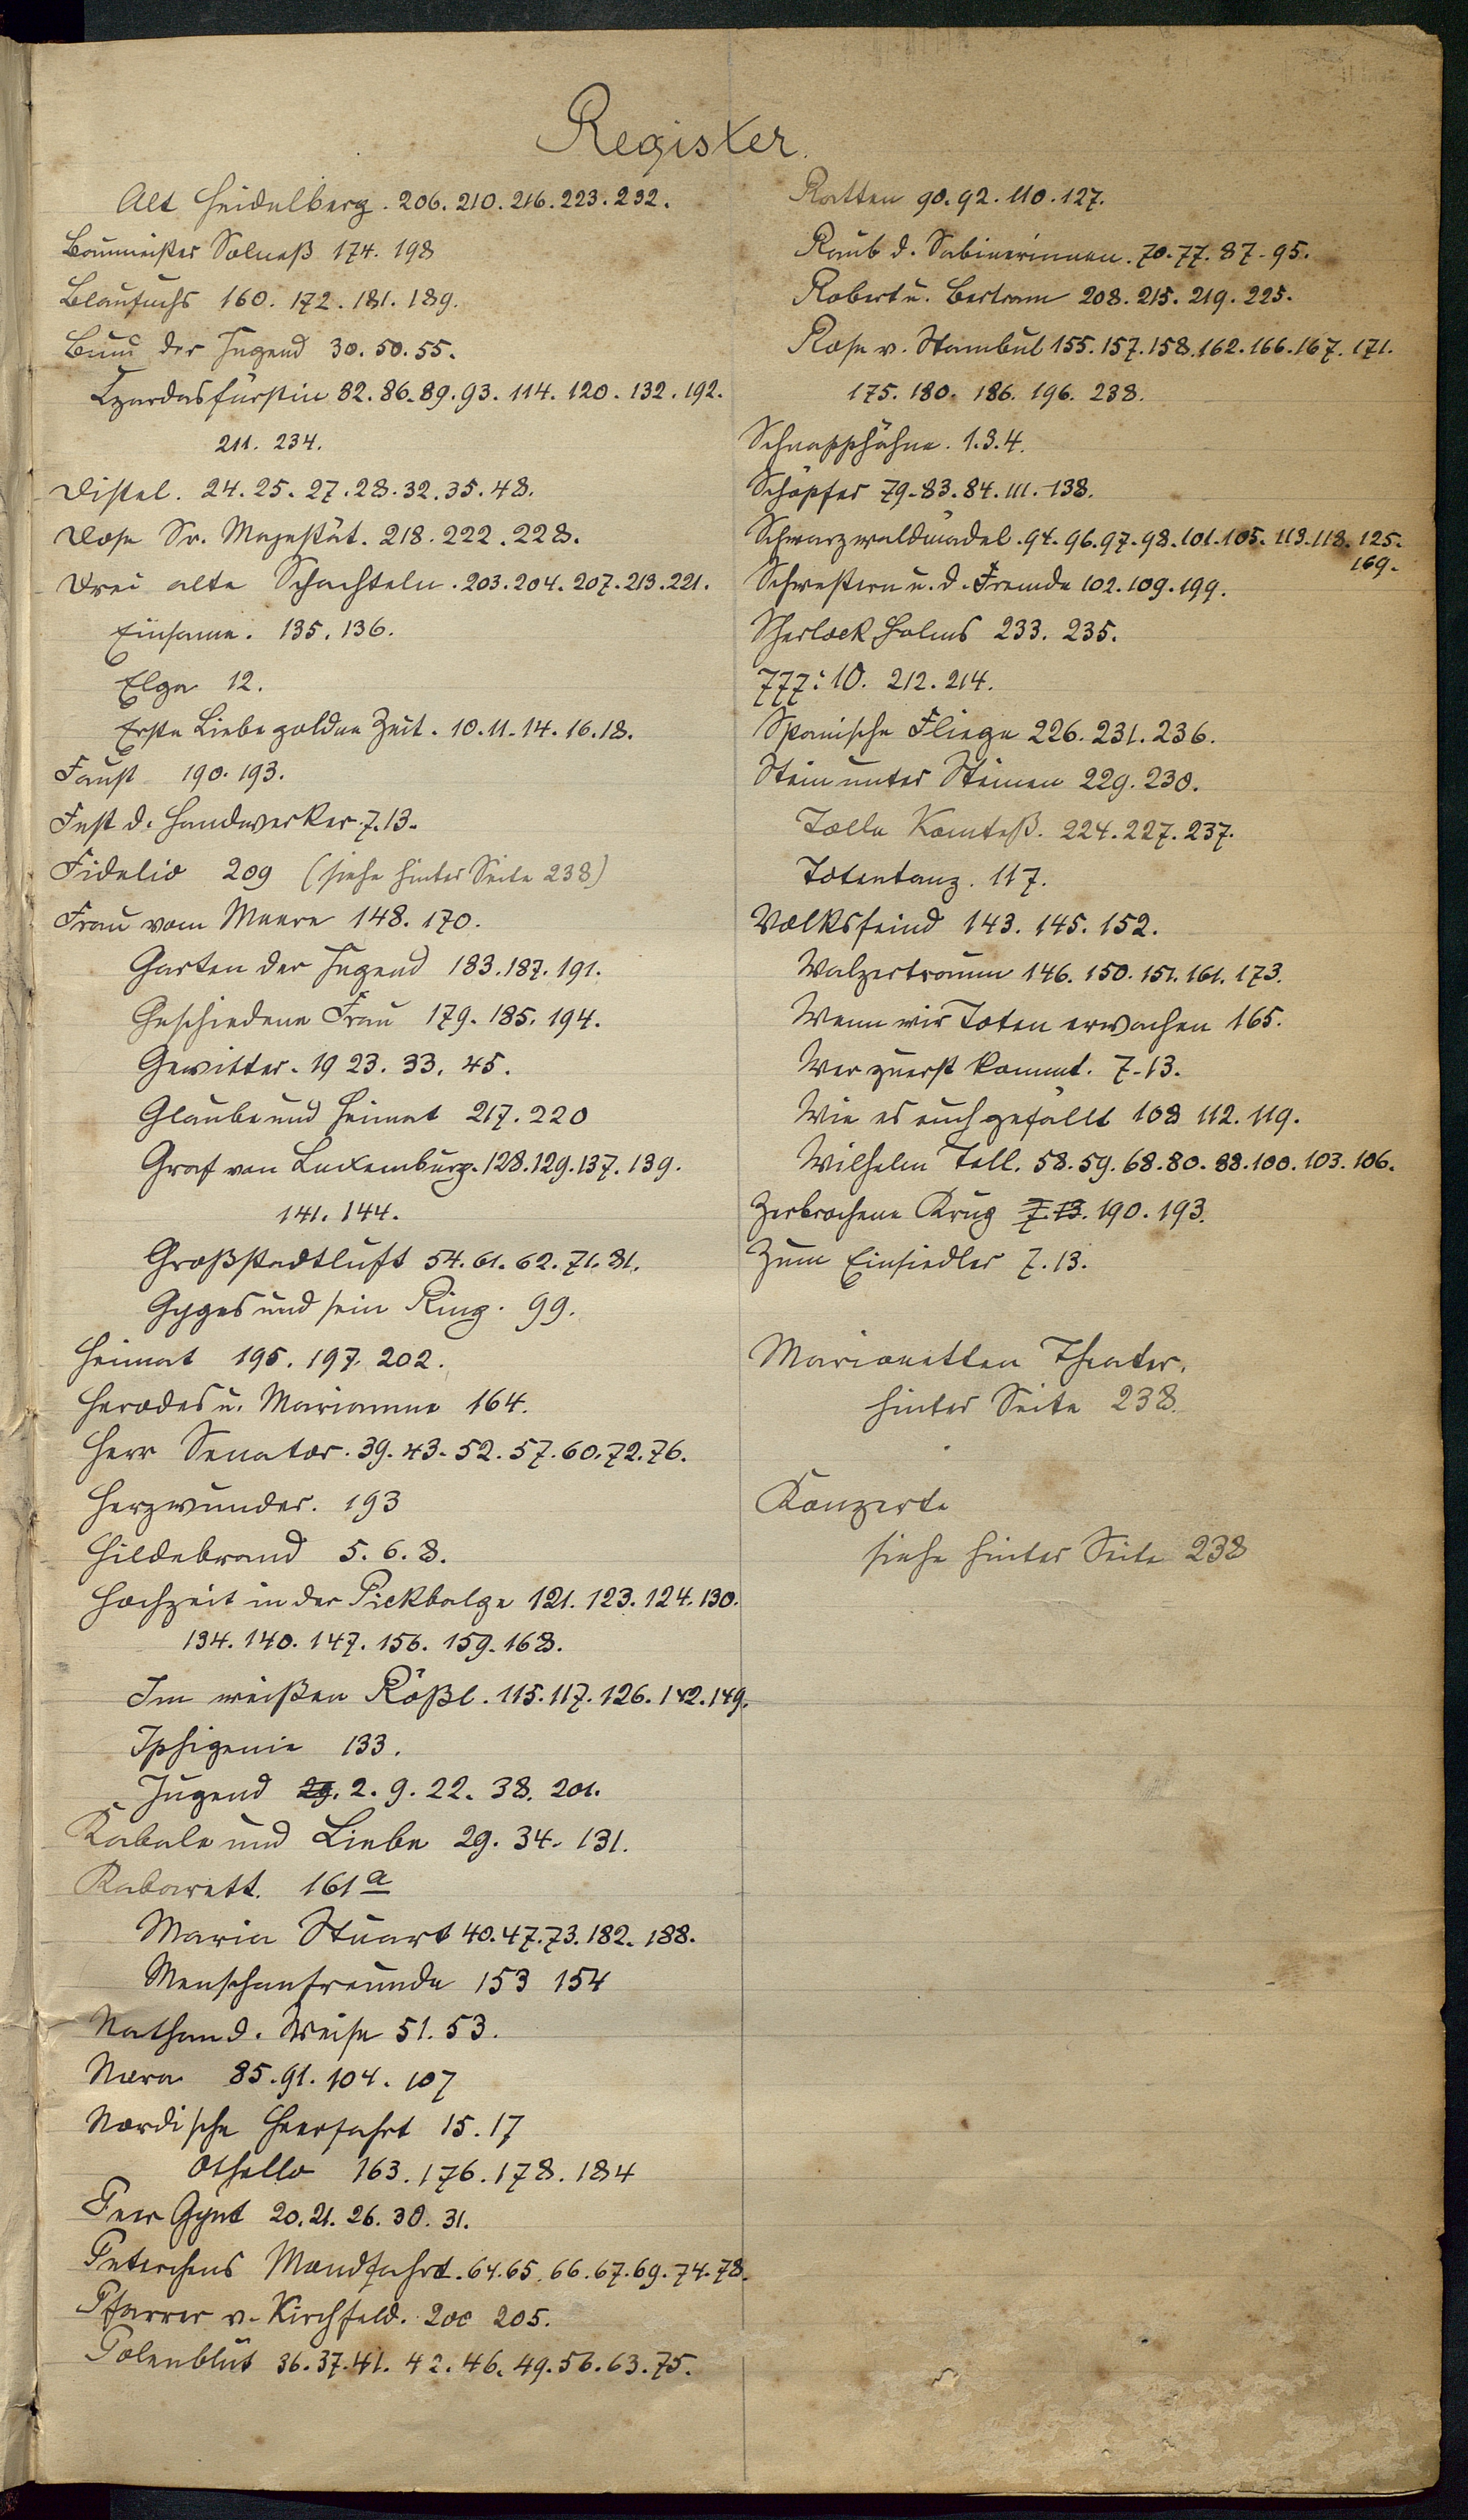 Register.
Alt Heidelberg. 206. 210. 216. 223. 232.
Baumeister Solneß 174. 198
Blaufuchs 160. 172. 181. 189.
Bund der Jugend 30. 50. 55.
Czardasfürstin 82. 86. 89. 93. 114. 120. 132. 192.
211. 234.
Distel. 24. 25. 27. 28. 32. 35. 48.
Dose Sr. Majestät. 218. 222. 228.
Drei alte Schachteln. 203. 204. 207. 213. 221.
Einsame. 135. 136.
Elga 12.
Erste Liebe goldne Zeit. 10. 11. 14. 16. 18.
Faust 190. 193.
Fest d. Handwerker. 7. 13.
Fidelio 209 (siehe hinter Seite 238)
Frau vom Meere 148. 170.
Garten der Jugend 183. 187. 191.
Geschiedene Frau 179. 185. 194.
Gewitter. 19 23. 33. 45.
Glaube und Heimat 217. 220
Graf von Luxemburg. 128. 129. 137. 139.
141. 144.
Großstadtluft 54. 61. 62. 71. 81.
Gyges und sein Ring. 99.
Heimat 195. 197. 202.
Herodes u. Mariamne 164.
Herr Senator. 39. 43. 52. 57. 60. 72. 76.
Herzwunder. 193
Hildebrand 5. 6. 8.
Hochzeit in der Pickbalge 121. 123. 124. 130.
134. 140. 147. 156. 159. 168.
Im weißen Rößl. 115. 117. 126. 142. 149.
Iphigenie 133.
Jugend 29. 2. 9. 22. 38. 201.
Kabale und Liebe 29. 34. 131.
Kabarett. 161 a
Maria Stuart 40. 47. 73. 182. 188.
Menschenfreunde 153 154
Nathan d. Weise 51. 53.
Nora 85. 91. 104. 107
Nordische Heerfahrt 15. 17
Othello 163. 176. 178. 184
Peer Gynt 20. 21. 26. 30. 31.
Peterchens Mondfahrt. 64. 65. 66. 67. 69. 74. 78.
Pfarrer v. Kirchfeld. 200 205.
Polenblut 36. 37. 41. 42. 46. 49. 56. 63. 75.
Ratten 90. 92. 110. 127.
Raub d. Sabinerinnen. 70. 77. 87. 95.
Robert u. Bertram 208. 215. 219. 225.
Rose v. Stambul 155. 157. 158. 162. 166. 167. 171.
175. 180. 186. 196. 238.
Schnapphähne. 1. 3. 4.
Schöpfer 79. 83. 84. 111. 138.
Schwarzwaldmädel. 94. 96. 97. 98. 101. 105. 113. 118. 125.
169.
Schwestern u. d. Fremde 102. 109. 199.
Sherlock Holms 233. 235.
777:10. 212. 214.
Spanische Fliege 226. 231. 236.
Stein unter Steinen 229. 230.
Tolle Komteß. 224. 227. 237.
Totentanz. 117.
Volksfeind 143. 145. 152.
Walzertraum 146. 150. 151. 161. 173.
Wenn wir Toten erwachen 165.
Wer zuerst kommt. 7. 13.
Wie es euch gefällt 108 112. 119.
Wilhelm Tell. 58. 59. 68. 80. 88. 100. 103. 106.
Zerbrochene Krug 7. 13. 190. 193.
Zum Einsiedler 7. 13.
Marionetten Theater.
hinter Seite 238.
Konzerte
siehe hinter Seite 238